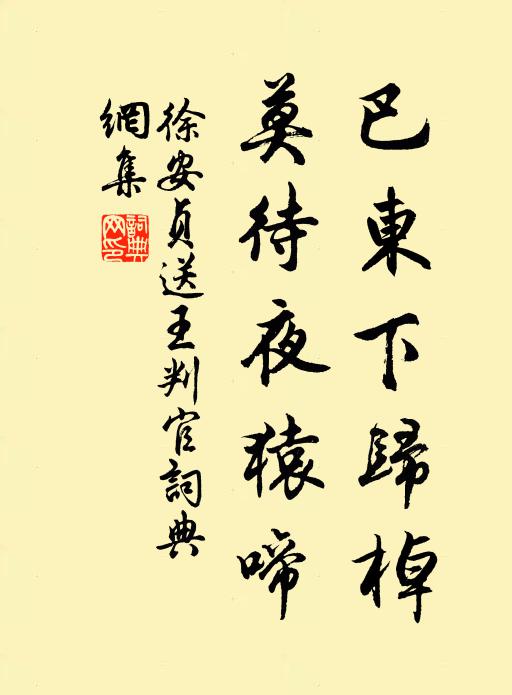 巴東下歸棹
莫待夜猿啼
徐安貞送王判官詞典
網集
詞典網印